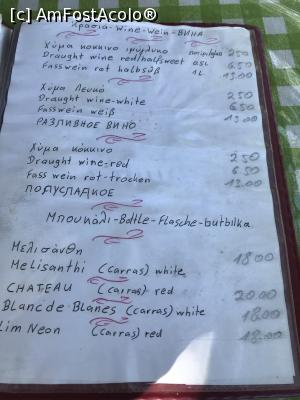 [c] AmFostAcolo®
Κρασιά-Wine-Wein-ВИНА
Χύμα κόκκινο ημίγλυκο ποτήρι 250
Draught wine red/halfsweet 0.5L 6.50
Fasswein rot halbsüß 1L 13.00
Χύμα Λευκό 250
Draught wine-white 6.50
Fasswein weiß 13.00
РАЗЛИВНОЕ ВИНО
Χύμα κόκκινο 250
Draught wine-red 6.50
Fass wein rot-trocken 13.00
ПОЛУСЛАДКОЕ
Μπουκάλι-Bottle-Flasche-butbilka
Μελισάνθη 18.00
Melisanthi (carras) white
CHATEAU (carras) red 20.00
Blanc de Blanes (carras) white 18.00
Lim Neon (carras) red 18.00